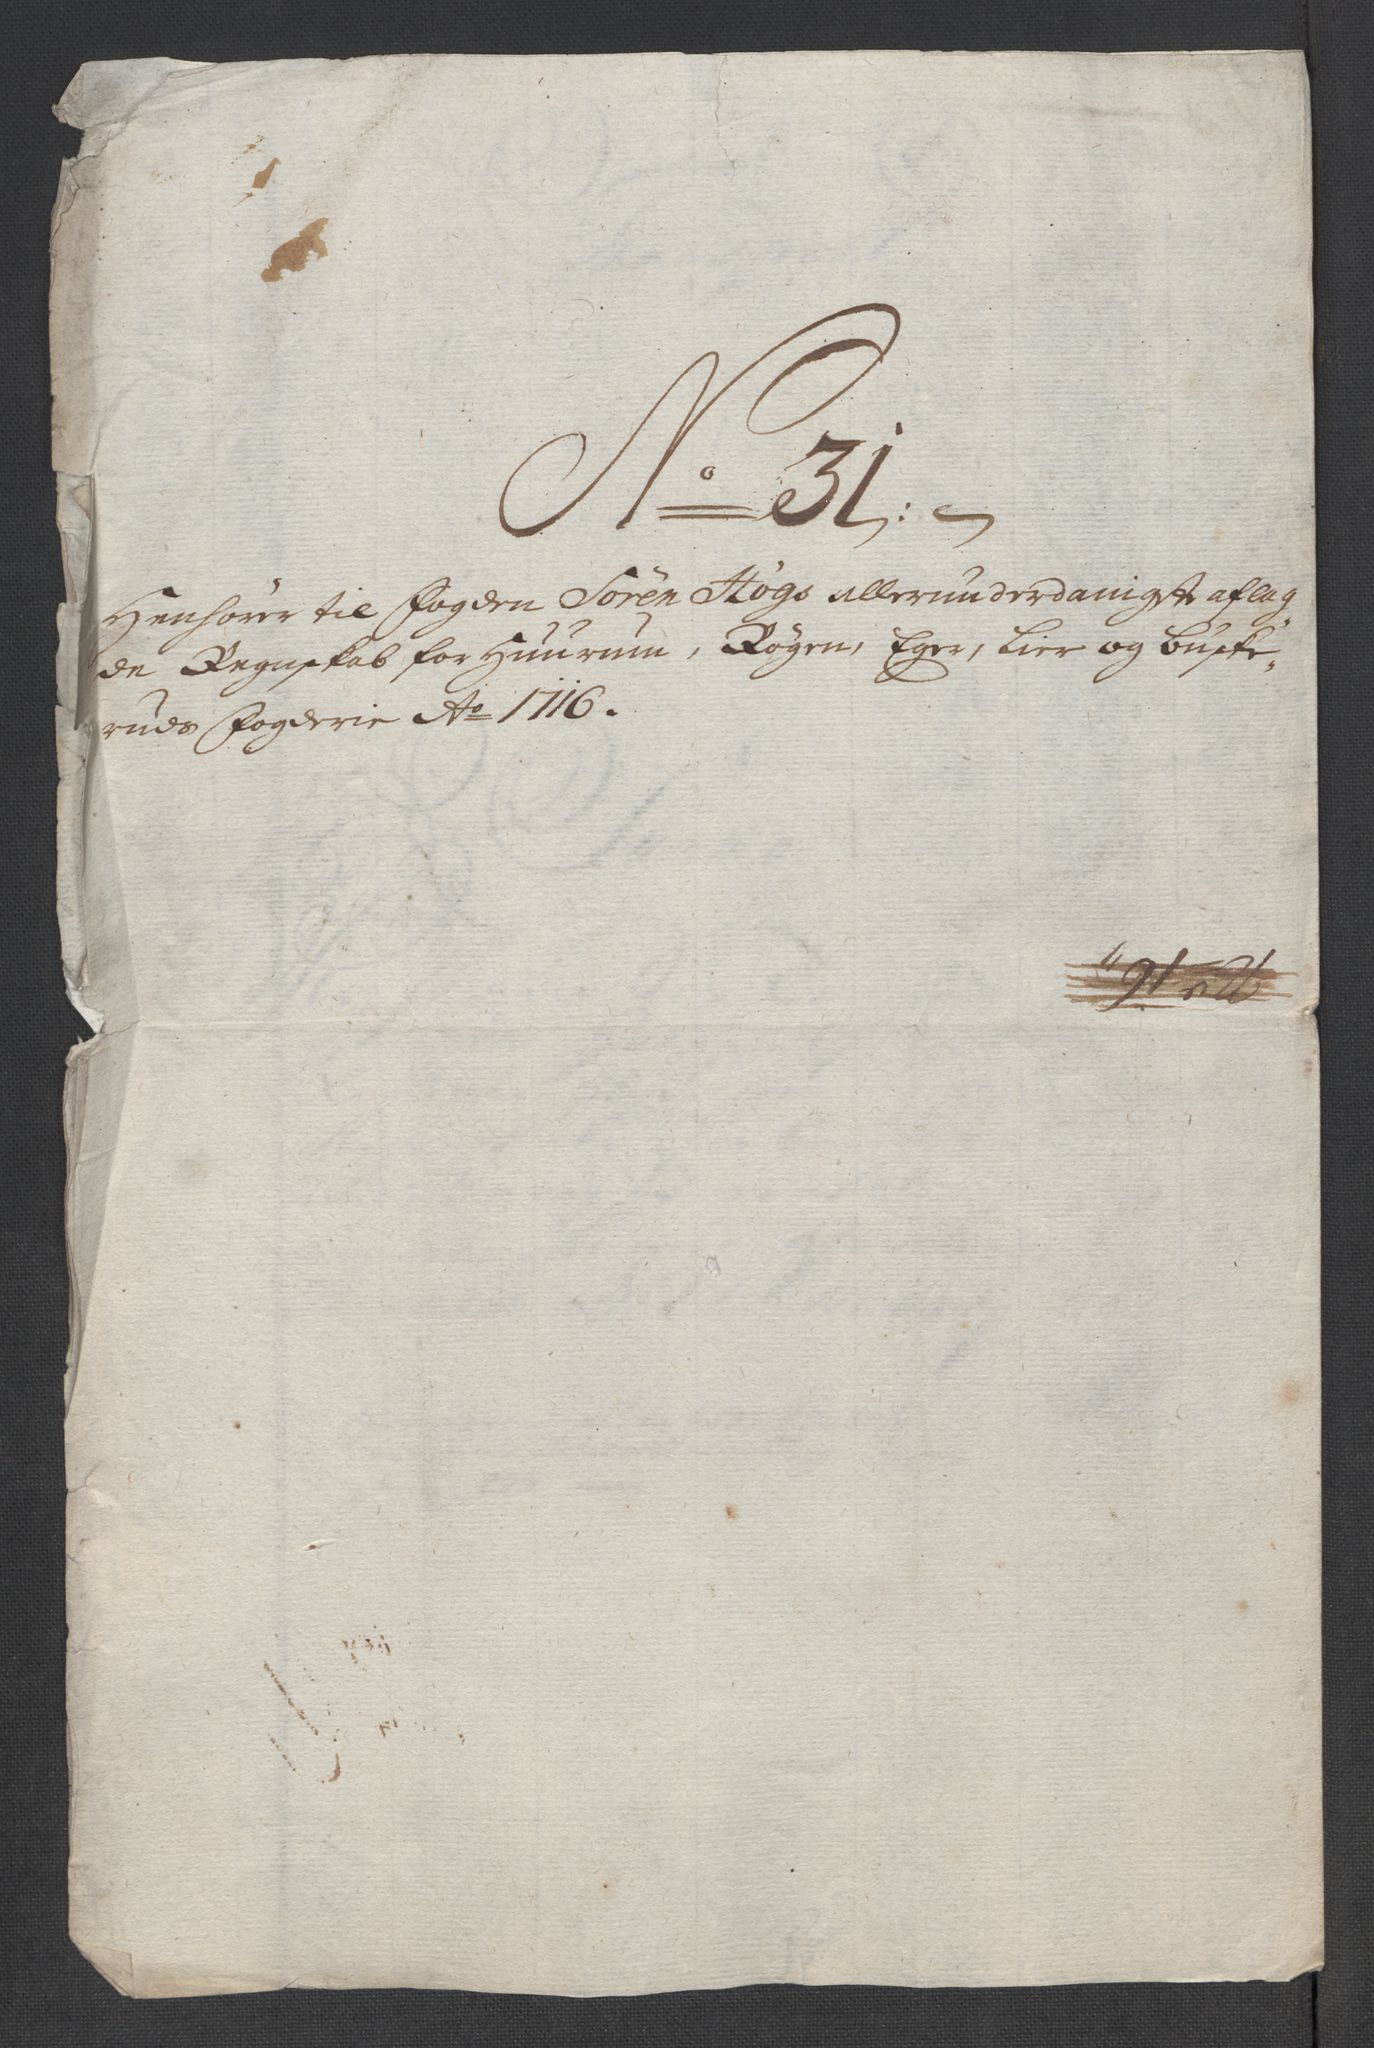 No 31:
Henhörer til Fogden Sören Högs allerunderdanigste aflag
de Regnskab for Huurum, Rögen, Eger, Lier og Buske„
ruds Fogderie Ao 1716.